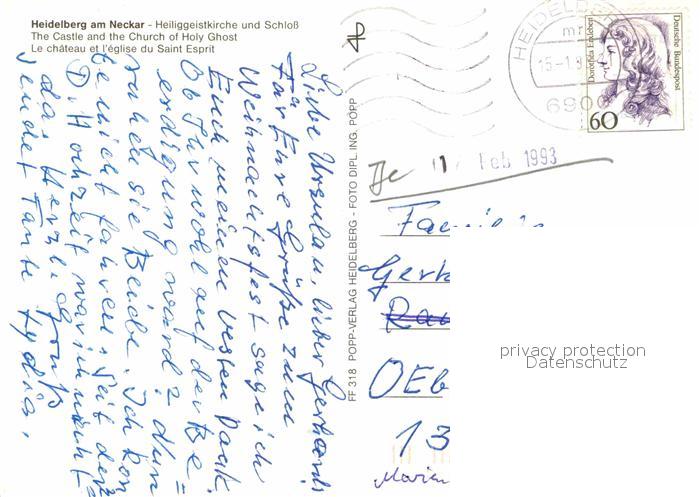 Heidelberg am Neckar - Heiliggeistkirche und Schloß
The Castle and the Church of Holy Ghost
Le château et l'église du Saint Esprit
HEIDELBERG
15-1
6900
Dorothea Erxleben
Deutsche Bundespost
60
Feb 1993
FF 318 POPP-VERLAG HEIDELBERG - FOTO DIPL. ING. POPP
Liebe Ursula u, lieber Gerhard!
Für Eure Grüße zum
Weihnachtsfest sage ich
Euch meinen besten Dank.
Ob Ihr wohl auf der Be=
erdigung ward? Nun
ruhen sie Beide. Ich kon
te nicht fahren, Seit der
D. Hochzeit war ich nicht
da. Herzl. Gruß
sendet Tante Lydia.
Familie
Gerh
OEb
13
Marien
privacy protection
Datenschutz